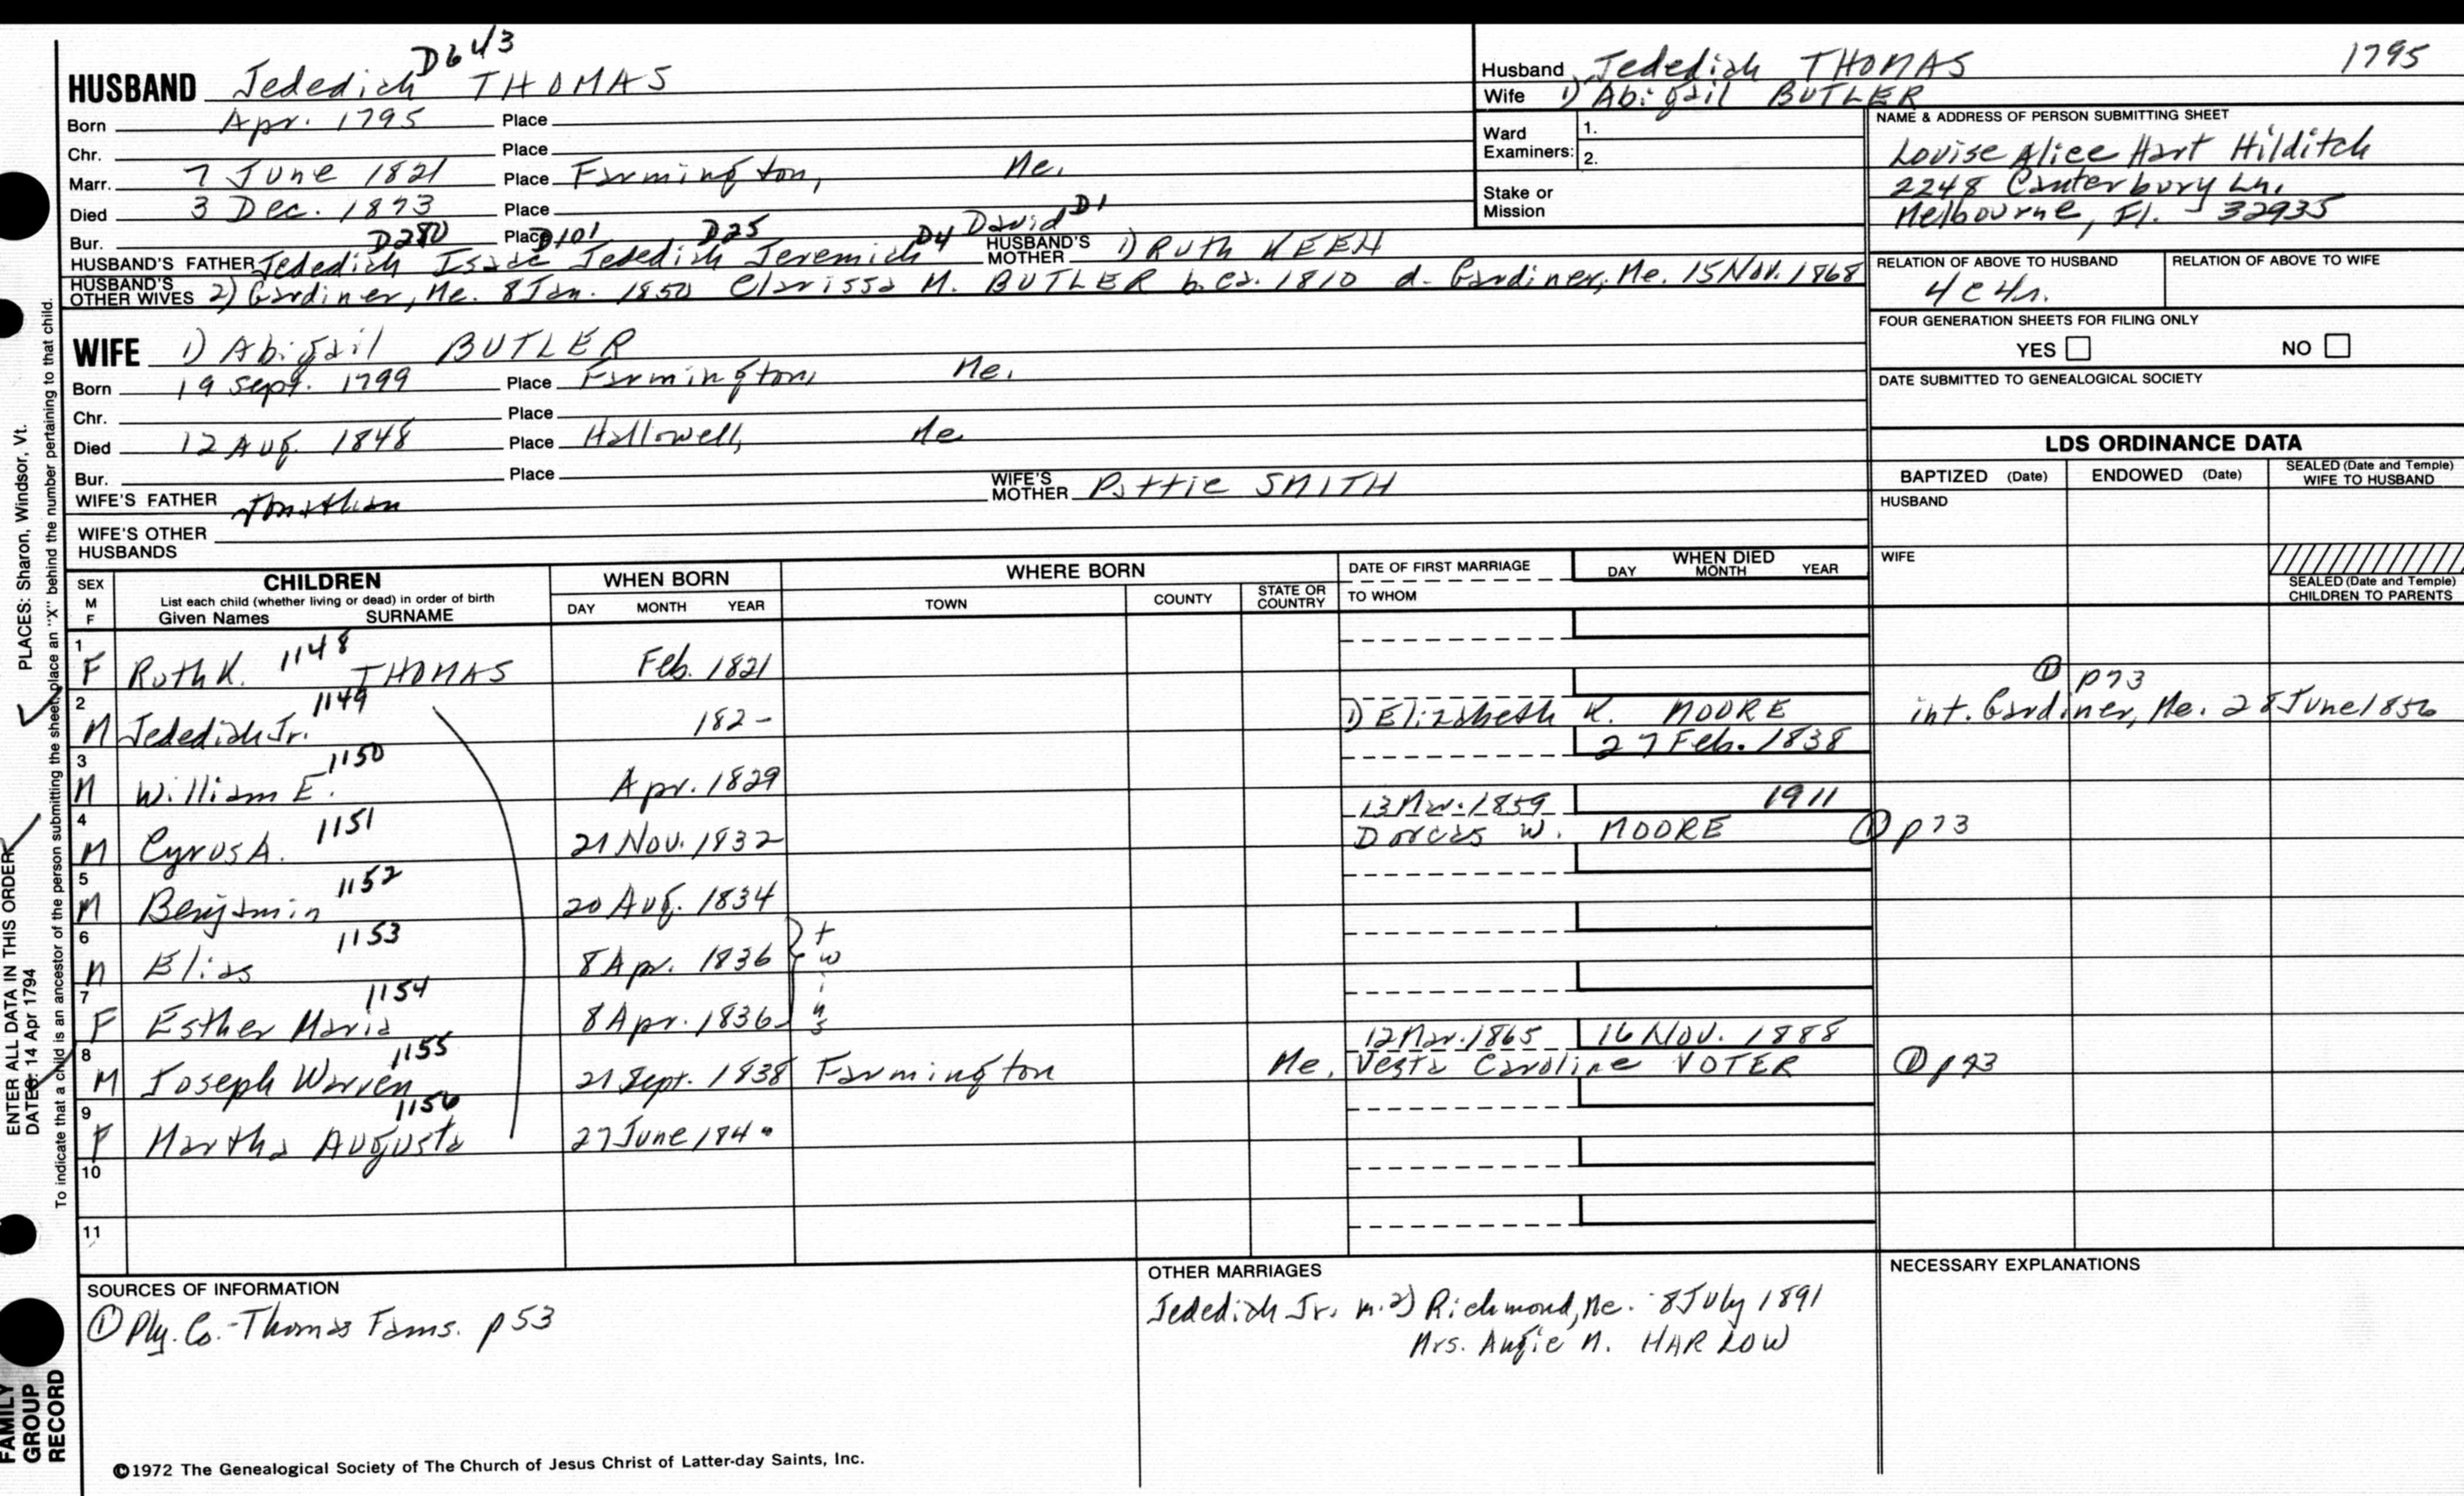 D643
HUSBAND Jedediah THOMAS
Born Apr. 1795 Place
Chr. Place
Marr. 7 June 1821 Place Farmington, Me.
Died 3 Dec. 1873 Place
Bur. Place
D280 D101 D25 D4 David D1
HUSBAND'S FATHER Jedediah Isaac Jedediah Jeremiah HUSBAND'S MOTHER 1) Ruth KEEN
HUSBAND'S OTHER WIVES 2) Gardiner, Me. 8 Jan. 1850 Clarissa M. BUTLER b. ca. 1810 d. Gardiner, Me. 15 Nov. 1868
WIFE 1) Abigail BUTLER
Born 19 Sept. 1799 Place Farmington, Me.
Chr. Place
Died 12 Aug. 1848 Place Hallowell, Me
Bur. Place
WIFE'S FATHER Jonathan WIFE'S MOTHER Pattie SMITH
WIFE'S OTHER HUSBANDS
Husband Jedediah THOMAS 1795
Wife 1) Abigail BUTLER
Ward Examiners: 1.
2.
Stake or Mission
NAME & ADDRESS OF PERSON SUBMITTING SHEET
Louise Alice Hart Hilditch
2248 Canterbury Ln.
Melbourne, Fl. 32935
RELATION OF ABOVE TO HUSBAND RELATION OF ABOVE TO WIFE
4c4r.
FOUR GENERATION SHEETS FOR FILING ONLY
YES NO
DATE SUBMITTED TO GENEALOGICAL SOCIETY
LDS ORDINANCE DATA
BAPTIZED (Date) ENDOWED (Date) SEALED (Date and Temple) WIFE TO HUSBAND
HUSBAND
WIFE
SEALED (Date and Temple) CHILDREN TO PARENTS
SEX M F CHILDREN WHEN BORN WHERE BORN DATE OF FIRST MARRIAGE WHEN DIED
List each child (whether living or dead) in order of birth
Given Names SURNAME DAY MONTH YEAR TOWN COUNTY STATE OR COUNTRY TO WHOM DAY MONTH YEAR
1 F Ruth K. 1148 THOMAS Feb. 1821
① p73
2 M Jedediah Jr. 1149 182- 1) Elizabeth K. MOORE int. Gardiner, Me. 28 June 1856
3 M William E. 1150 Apr. 1829 27 Feb. 1838
4 M Cyrus A. 1151 21 Nov. 1832 13 Mar. 1859 1911
Dorcas W. MOORE ① p73
5 M Benjamin 1152 20 Aug. 1834
6 M Elias 1153 8 Apr. 1836 twins
7 F Esther Maria 1154 8 Apr. 1836
8 M Joseph Warren 1155 21 Sept. 1838 Farmington Me. 12 Mar. 1865 16 Nov. 1888
Vesta Caroline VOTER ① p73
9 F Martha Augusta 1156 27 June 1840
10
11
SOURCES OF INFORMATION
① Ply. Co.-Thomas Fams. p53
OTHER MARRIAGES
Jedediah Jr. m. 2) Richmond, Me. 8 July 1891
Mrs. Angie M. HARLOW
NECESSARY EXPLANATIONS
©1972 The Genealogical Society of The Church of Jesus Christ of Latter-day Saints, Inc.
PLACES: Sharon, Windsor, Vt.
To indicate that a child is an ancestor of the person submitting the sheet, place an "X" behind the number pertaining to that child.
ENTER ALL DATA IN THIS ORDER:
DATES: 14 Apr 1794
FAMILY GROUP RECORD